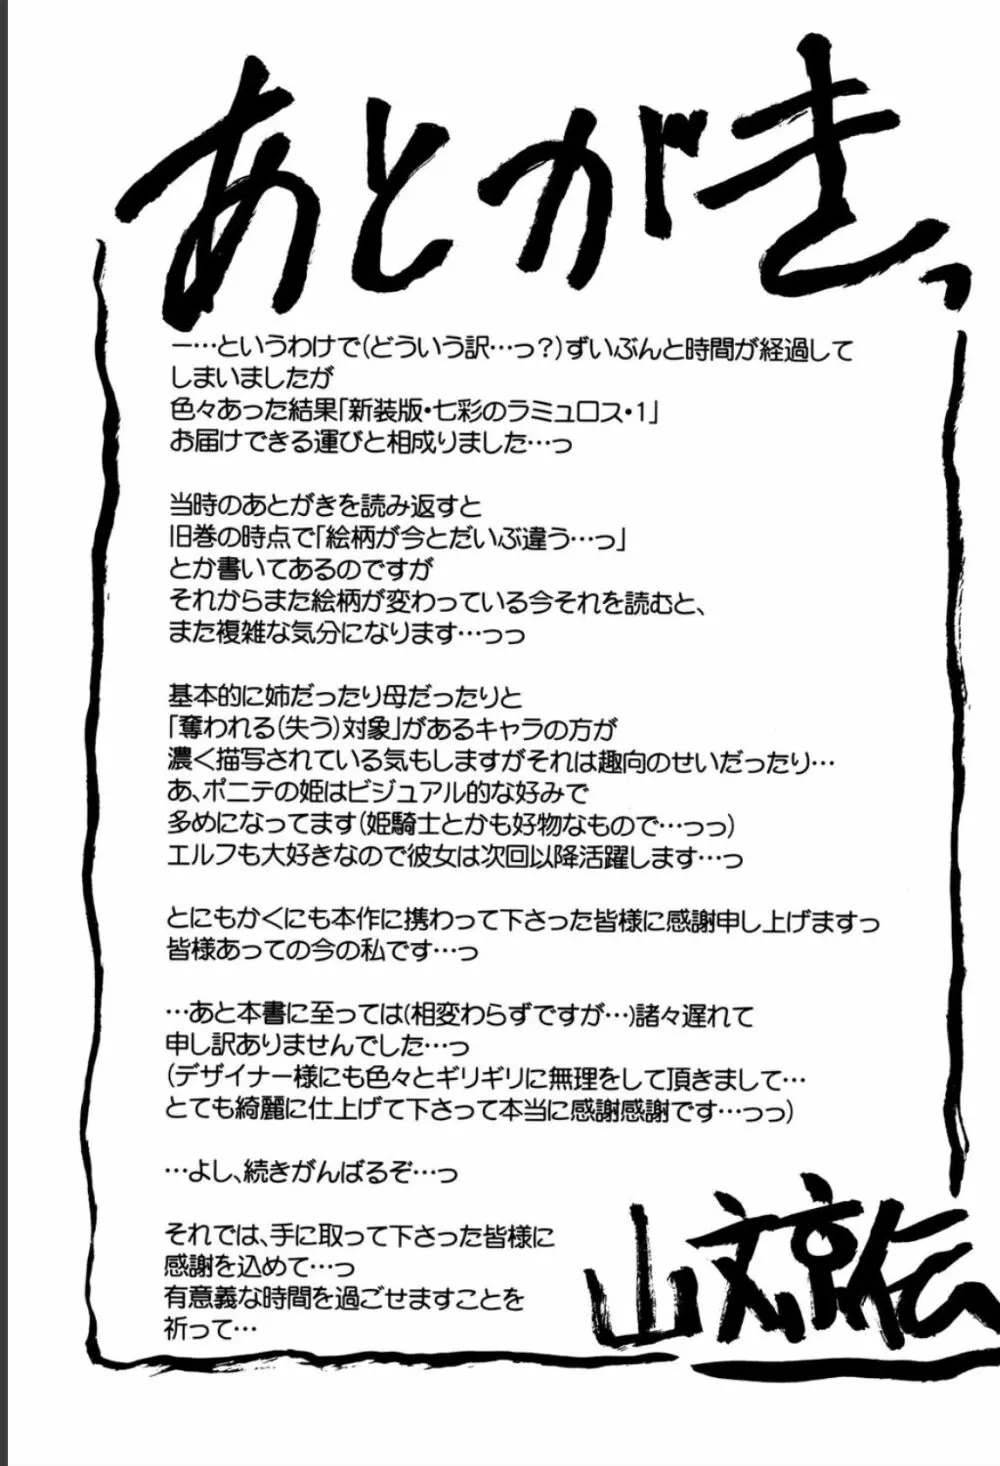 あとがきっ
ー…というわけで(どういう訳…っ?)ずいぶんと時間が経過して
しまいましたが
色々あった結果「新装版・七彩のラミュロス・1」
お届けできる運びと相成りました…っ
当時のあとがきを読み返すと
旧巻の時点で「絵柄が今とだいぶ違う…っ」
とか書いてあるのですが
それからまた絵柄が変わっている今それを読むと、
また複雑な気分になります…っっ
基本的に姉だったり母だったりと
「奪われる(失う)対象」があるキャラの方が
濃く描写されている気もしますがそれは趣向のせいだったり…
あ、ポニテの姫はビジュアル的な好みで
多めになってます(姫騎士とかも好物なもので…っっ)
エルフも大好きなので彼女は次回以降活躍します…っ
とにもかくにも本作に携わって下さった皆様に感謝申し上げますっ
皆様あっての今の私です…っ
…あと本書に至っては(相変わらずですが…)諸々遅れて
申し訳ありませんでした…っ
(デザイナー様にも色々とギリギリに無理をして頂きまして…
とても綺麗に仕上げて下さって本当に感謝感謝です…っっ)
…よし、続きがんばるぞ…っ
それでは、手に取って下さった皆様に
感謝を込めて…っ
有意義な時間を過ごせますことを
祈って…
山文京伝